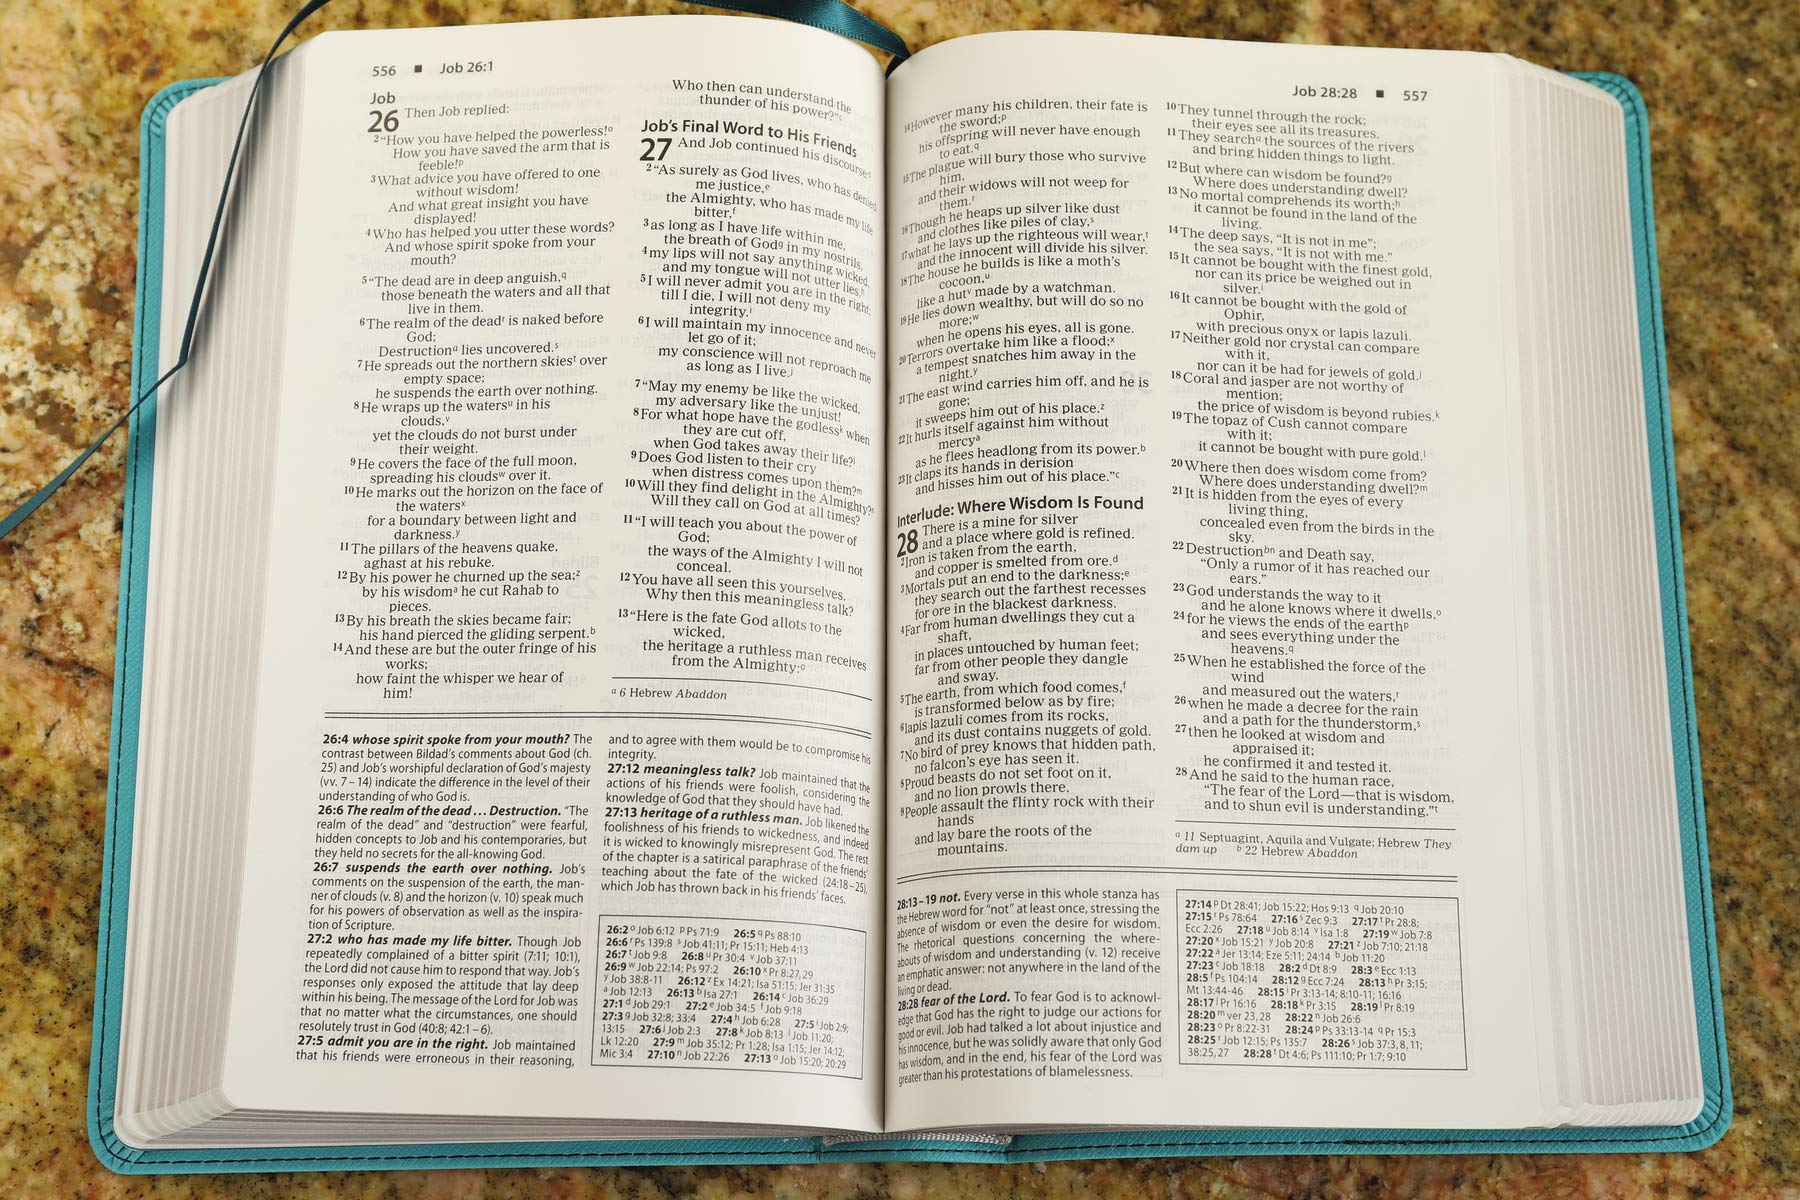 556 ■ Job 26:1
Job
26 Then Job replied:
2“How you have helped the powerless!o
How you have saved the arm that is
feeble!p
3What advice you have offered to one
without wisdom!
And what great insight you have
displayed!
4Who has helped you utter these words?
And whose spirit spoke from your
mouth?
5“The dead are in deep anguish,q
those beneath the waters and all that
live in them.
6The realm of the deadr is naked before
God;
Destructiona lies uncovered.s
7He spreads out the northern skiest over
empty space;
he suspends the earth over nothing.
8He wraps up the watersu in his
clouds,v
yet the clouds do not burst under
their weight.
9He covers the face of the full moon,
spreading his cloudsw over it.
10He marks out the horizon on the face of
the watersx
for a boundary between light and
darkness.y
11The pillars of the heavens quake,
aghast at his rebuke.
12By his power he churned up the sea;z
by his wisdoma he cut Rahab to
pieces.
13By his breath the skies became fair;
his hand pierced the gliding serpent.b
14And these are but the outer fringe of his
works;
how faint the whisper we hear of
him!
Who then can understand the
thunder of his power?”c
Job’s Final Word to His Friends
27 And Job continued his discourse:d
2“As surely as God lives, who has denied
me justice,e
the Almighty, who has made my life
bitter,f
3as long as I have life within me,
the breath of Godg in my nostrils,
4my lips will not say anything wicked,
and my tongue will not utter lies.h
5I will never admit you are in the right;
till I die, I will not deny my
integrity.i
6I will maintain my innocence and never
let go of it;
my conscience will not reproach me
as long as I live.j
7“May my enemy be like the wicked,
my adversary like the unjust!
8For what hope have the godlessk when
they are cut off,
when God takes away their life?l
9Does God listen to their cry
when distress comes upon them?m
10Will they find delight in the Almighty?n
Will they call on God at all times?
11“I will teach you about the power of
God;
the ways of the Almighty I will not
conceal.
12You have all seen this yourselves.
Why then this meaningless talk?
13“Here is the fate God allots to the
wicked,
the heritage a ruthless man receives
from the Almighty:o
a 6 Hebrew Abaddon
26:4 whose spirit spoke from your mouth? The
contrast between Bildad’s comments about God (ch.
25) and Job’s worshipful declaration of God’s majesty
(vv. 7–14) indicate the difference in the level of their
understanding of who God is.
26:6 The realm of the dead ... Destruction. “The
realm of the dead” and “destruction” were fearful,
hidden concepts to Job and his contemporaries, but
they held no secrets for the all-knowing God.
26:7 suspends the earth over nothing. Job’s
comments on the suspension of the earth, the man-
ner of clouds (v. 8) and the horizon (v. 10) speak much
for his powers of observation as well as the inspira-
tion of Scripture.
27:2 who has made my life bitter. Though Job
repeatedly complained of a bitter spirit (7:11; 10:1),
the Lord did not cause him to respond that way. Job’s
responses only exposed the attitude that lay deep
within his being. The message of the Lord for Job was
that no matter what the circumstances, one should
resolutely trust in God (40:8; 42:1–6).
27:5 admit you are in the right. Job maintained
that his friends were erroneous in their reasoning,
and to agree with them would be to compromise his
integrity.
27:12 meaningless talk? Job maintained that the
actions of his friends were foolish, considering the
knowledge of God that they should have had.
27:13 heritage of a ruthless man. Job likened the
foolishness of his friends to wickedness, and indeed
it is wicked to knowingly misrepresent God. The rest
of the chapter is a satirical paraphrase of the friends’
teaching about the fate of the wicked (24:18–25),
which Job has thrown back in his friends’ faces.
26:2 o Job 6:12 p Ps 71:9 26:5 q Ps 88:10
26:6 r Ps 139:8 s Job 41:11; Pr 15:11; Heb 4:13
26:7 t Job 9:8 26:8 u Pr 30:4 v Job 37:11
26:9 w Job 22:14; Ps 97:2 26:10 x Pr 8:27,29
y Job 38:8-11 26:12 z Ex 14:21; Isa 51:15; Jer 31:35
a Job 12:13 26:13 b Isa 27:1 26:14 c Job 36:29
27:1 d Job 29:1 27:2 e Job 34:5 f Job 9:18
27:3 g Job 32:8; 33:4 27:4 h Job 6:28 27:5 i Job 2:9;
13:15 27:6 j Job 2:3 27:8 k Job 8:13 l Job 11:20;
Lk 12:20 27:9 m Job 35:12; Pr 1:28; Isa 1:15; Jer 14:12;
Mic 3:4 27:10 n Job 22:26 27:13 o Job 15:20; 20:29
Job 28:28 ■ 557
14However many his children, their fate is
the sword;p
his offspring will never have enough
to eat.q
15The plague will bury those who survive
him,
and their widows will not weep for
them.r
16Though he heaps up silver like dust
and clothes like piles of clay,s
17what he lays up the righteous will wear,t
and the innocent will divide his silver.
18The house he builds is like a moth’s
cocoon,u
like a hutv made by a watchman.
19He lies down wealthy, but will do so no
more;w
when he opens his eyes, all is gone.
20Terrors overtake him like a flood;x
a tempest snatches him away in the
night.y
21The east wind carries him off, and he is
gone;
it sweeps him out of his place.z
22It hurls itself against him without
mercya
as he flees headlong from its power.b
23It claps its hands in derision
and hisses him out of his place.”c
Interlude: Where Wisdom Is Found
28 There is a mine for silver
and a place where gold is refined.
2Iron is taken from the earth,
and copper is smelted from ore.d
3Mortals put an end to the darkness;e
they search out the farthest recesses
for ore in the blackest darkness.
4Far from human dwellings they cut a
shaft,
in places untouched by human feet;
far from other people they dangle
and sway.
5The earth, from which food comes,f
is transformed below as by fire;
6lapis lazuli comes from its rocks,
and its dust contains nuggets of gold.
7No bird of prey knows that hidden path,
no falcon’s eye has seen it.
8Proud beasts do not set foot on it,
and no lion prowls there.
9People assault the flinty rock with their
hands
and lay bare the roots of the
mountains.
10They tunnel through the rock;
their eyes see all its treasures.
11They searcha the sources of the rivers
and bring hidden things to light.
12But where can wisdom be found?g
Where does understanding dwell?
13No mortal comprehends its worth;h
it cannot be found in the land of the
living.
14The deep says, “It is not in me”;
the sea says, “It is not with me.”
15It cannot be bought with the finest gold,
nor can its price be weighed out in
silver.i
16It cannot be bought with the gold of
Ophir,
with precious onyx or lapis lazuli.
17Neither gold nor crystal can compare
with it,
nor can it be had for jewels of gold.j
18Coral and jasper are not worthy of
mention;
the price of wisdom is beyond rubies.k
19The topaz of Cush cannot compare
with it;
it cannot be bought with pure gold.l
20Where then does wisdom come from?
Where does understanding dwell?m
21It is hidden from the eyes of every
living thing,
concealed even from the birds in the
sky.
22Destructionbn and Death say,
“Only a rumor of it has reached our
ears.”
23God understands the way to it
and he alone knows where it dwells,o
24for he views the ends of the earthp
and sees everything under the
heavens.q
25When he established the force of the
wind
and measured out the waters,r
26when he made a decree for the rain
and a path for the thunderstorm,s
27then he looked at wisdom and
appraised it;
he confirmed it and tested it.
28And he said to the human race,
“The fear of the Lord—that is wisdom,
and to shun evil is understanding.”t
a 11 Septuagint, Aquila and Vulgate; Hebrew They
dam up b 22 Hebrew Abaddon
28:13–19 not. Every verse in this whole stanza has
the Hebrew word for “not” at least once, stressing the
absence of wisdom or even the desire for wisdom.
The rhetorical questions concerning the where-
abouts of wisdom and understanding (v. 12) receive
an emphatic answer: not anywhere in the land of the
living or dead.
28:28 fear of the Lord. To fear God is to acknowl-
edge that God has the right to judge our actions for
good or evil. Job had talked a lot about injustice and
his innocence, but he was solidly aware that only God
has wisdom, and in the end, his fear of the Lord was
greater than his protestations of blamelessness.
27:14 p Dt 28:41; Job 15:22; Hos 9:13 q Job 20:10
27:15 r Ps 78:64 27:16 s Zec 9:3 27:17 t Pr 28:8;
Ecc 2:26 27:18 u Job 8:14 v Isa 1:8 27:19 w Job 7:8
27:20 x Job 15:21 y Job 20:8 27:21 z Job 7:10; 21:18
27:22 a Jer 13:14; Eze 5:11; 24:14 b Job 11:20
27:23 c Job 18:18 28:2 d Dt 8:9 28:3 e Ecc 1:13
28:5 f Ps 104:14 28:12 g Ecc 7:24 28:13 h Pr 3:15;
Mt 13:44-46 28:15 i Pr 3:13-14; 8:10-11; 16:16
28:17 j Pr 16:16 28:18 k Pr 3:15 28:19 l Pr 8:19
28:20 m ver 23,28 28:22 n Job 26:6
28:23 o Pr 8:22-31 28:24 p Ps 33:13-14 q Pr 15:3
28:25 r Job 12:15; Ps 135:7 28:26 s Job 37:3,8,11;
38:25,27 28:28 t Dt 4:6; Ps 111:10; Pr 1:7; 9:10